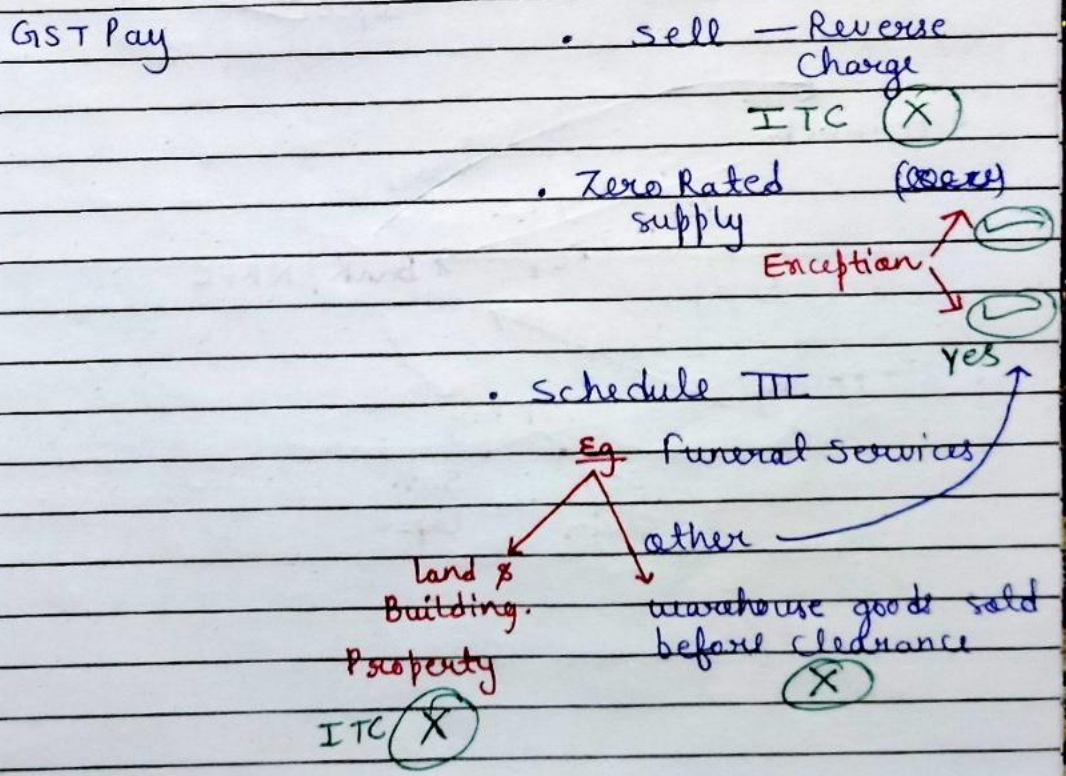 GST Pay
• sell — Reverse
Charge
ITC X
• Zero Rated
supply
Exception
yes
• Schedule III
Eg Funeral Services
other
Land &
Building.
warehouse goods sold
before clearance
Property
X
ITC X